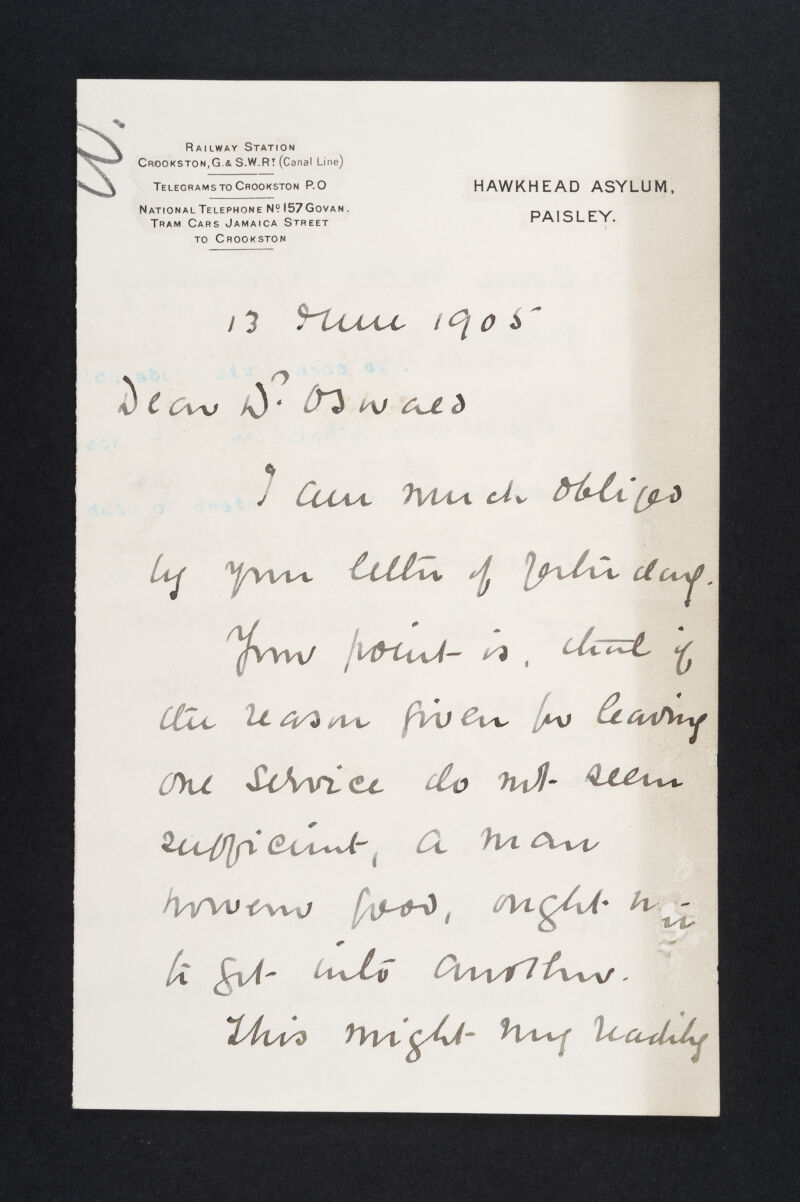 RAILWAY STATION
CROOKSTON, G. & S.W. RY (Canal Line)
TELEGRAMS TO CROOKSTON P.O
NATIONAL TELEPHONE No 157 GOVAN.
TRAM CARS JAMAICA STREET
TO CROOKSTON
HAWKHEAD ASYLUM,
PAISLEY.
13 June 1905
Dear Dr. Oswald
I am much obliged
by your letter of yesterday.
Your point is, that if
the reason given for leaving
one service do not seem
sufficient, a man
however good, ought not
to get into another.
This might very readily